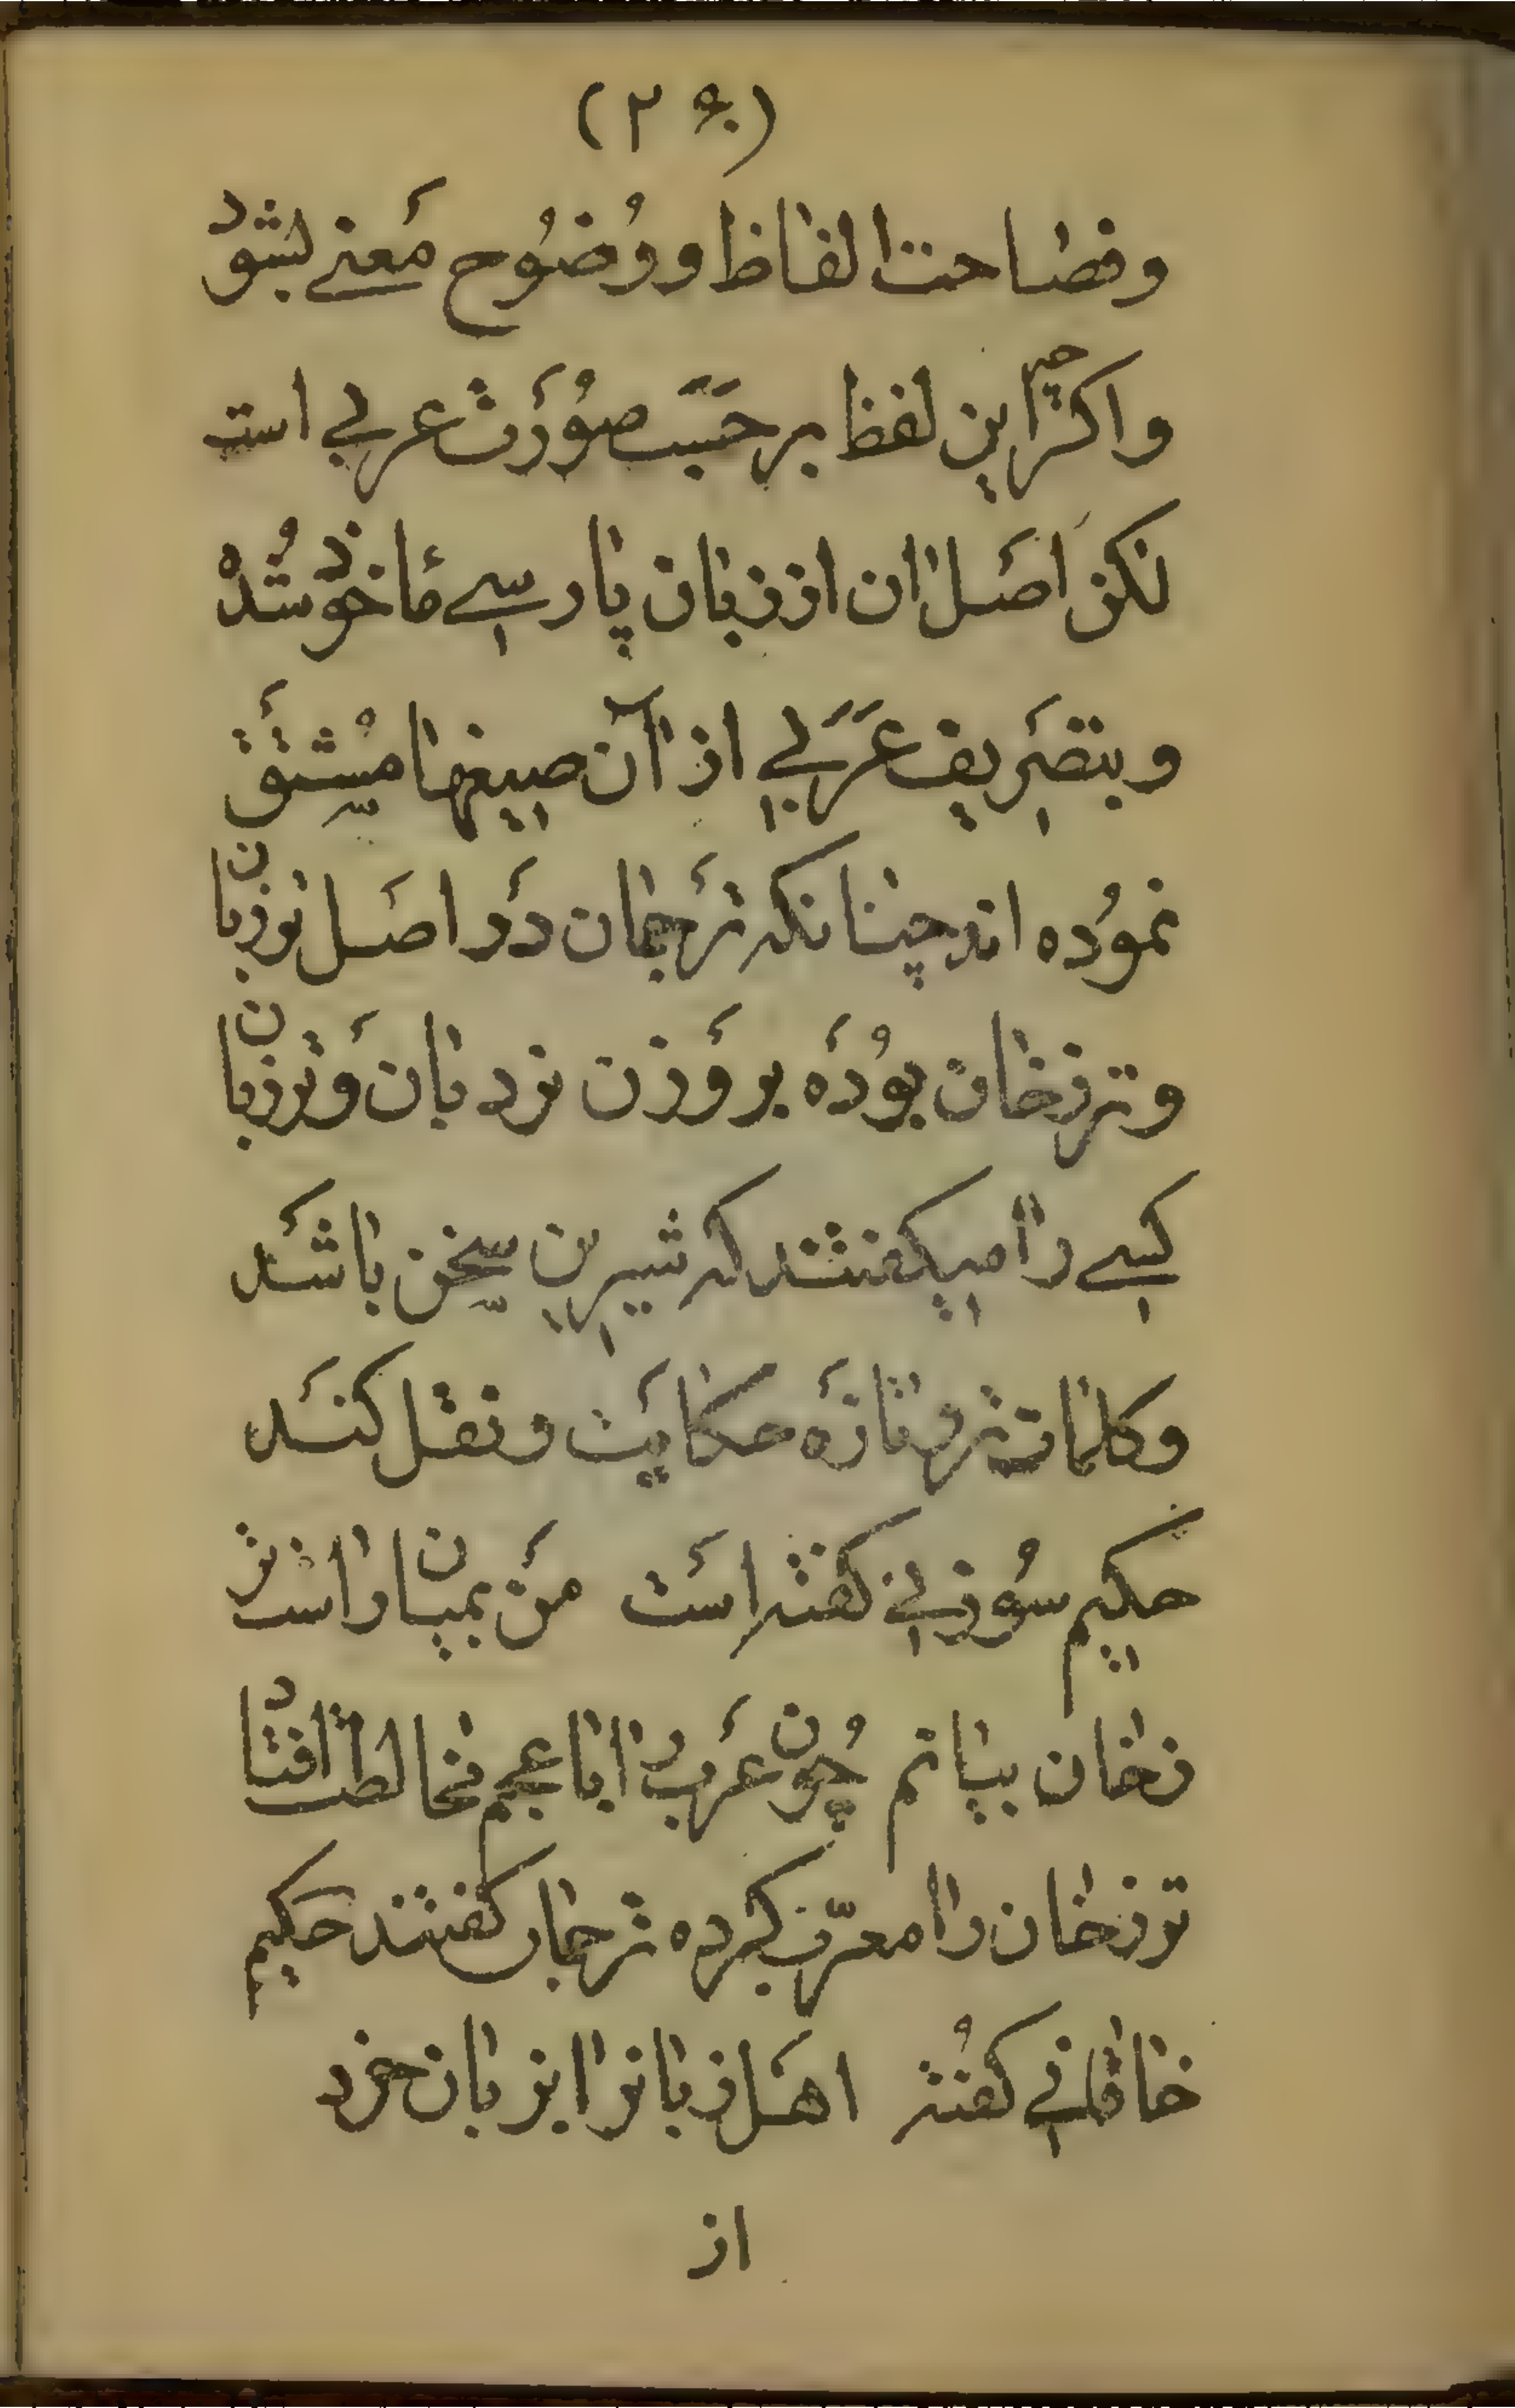 (۲۹)
و فصاحت الفاظ و وُضوُح مَعنے بشود
و اکرچه این لفظ بر حَسَب صوُرَت عربی است
لکن اصَل ان از زبان پارسے ماخوذ شُدْه
و بتصَریف عَرَبی از آن صیغها مُشتَق
نموُده اند چنانکه تَرجمان دَر اصَل ترزبان
و ترزخان بوُدَه بَر وَزن نردبان وَ ترزبان
کسے را میکفتند که شیرین سخن باشَد
و کلمات تر و تازَه حکایَت و نقل کنَد
حکیم سوُزنی کفته است مَن بمیان راست تر
زخان بیانم چوُن عَرَب را با عجم مخالطت افتاد
ترزخان را معرّب کرده ترجمان کفتند حکیم
خاقانی کفُته اهَل زبانرا بزبان خرد
از